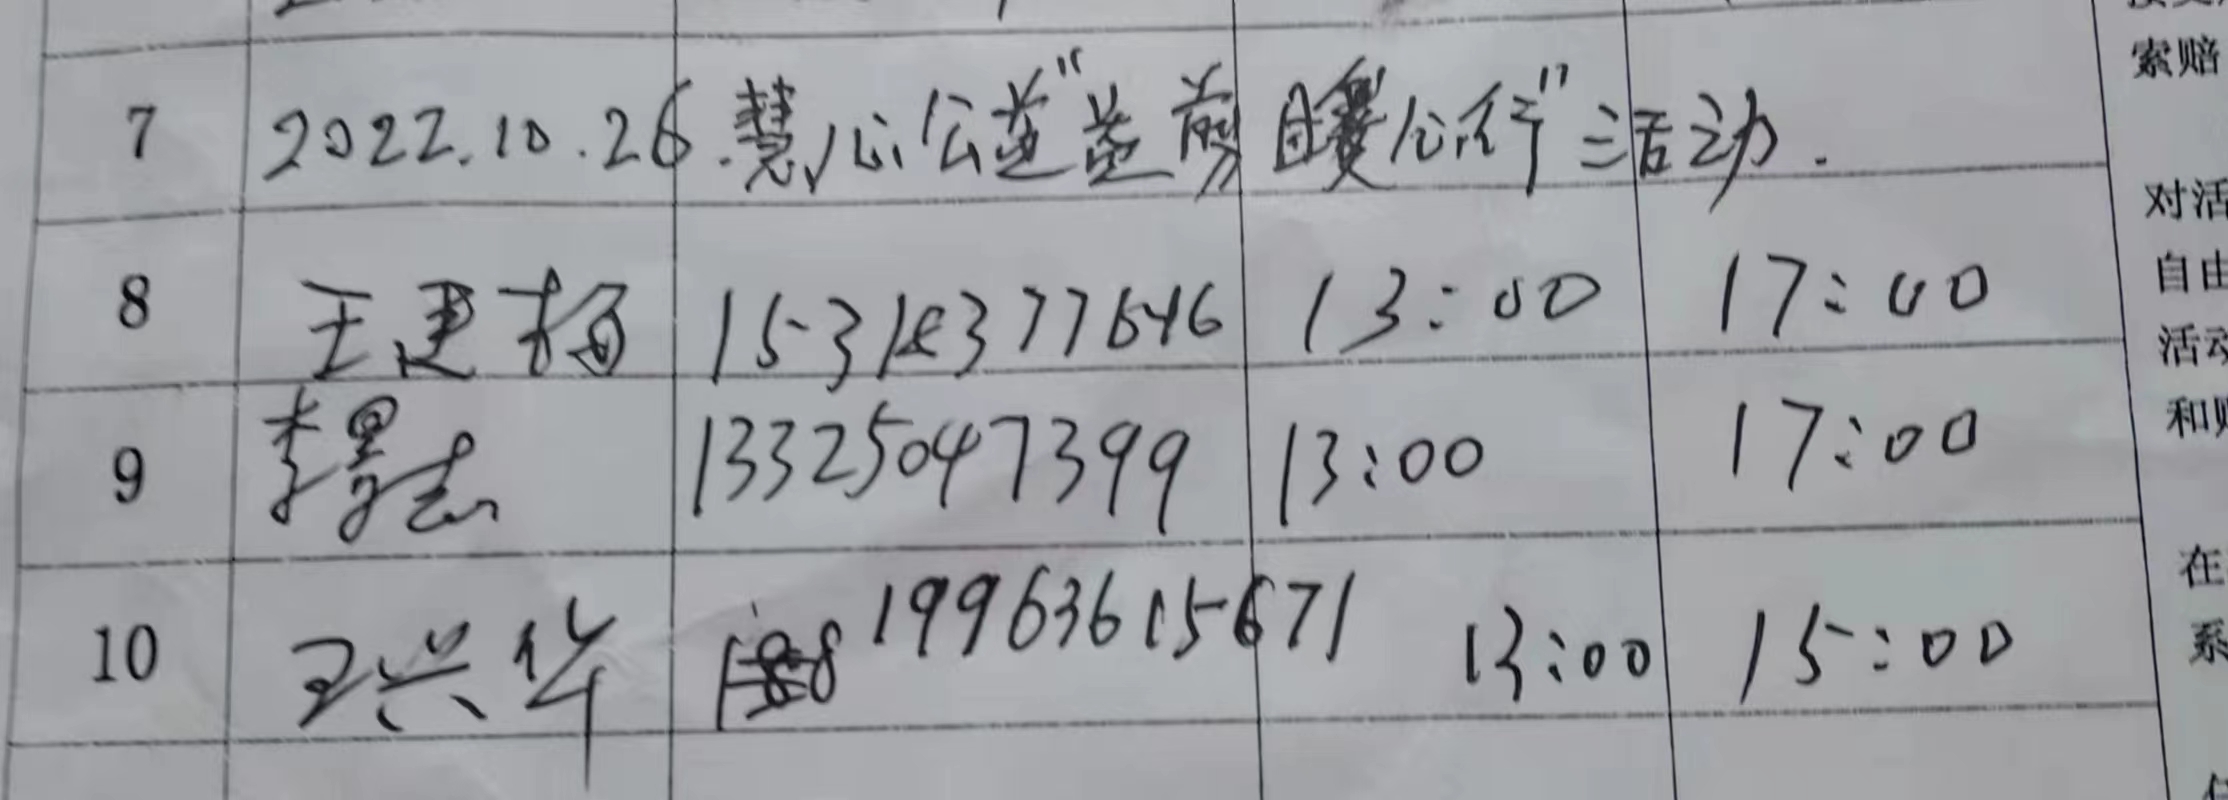 索赔
7 2022.10.26.慧心公益"益剪暖心行"活动.
对活
8 王建梅 15318377646 13:00 17:00
自由
活动
9 李 13325047399 13:00 17:00
和
在
10 王兴华 19963615671 13:00 15:00
系